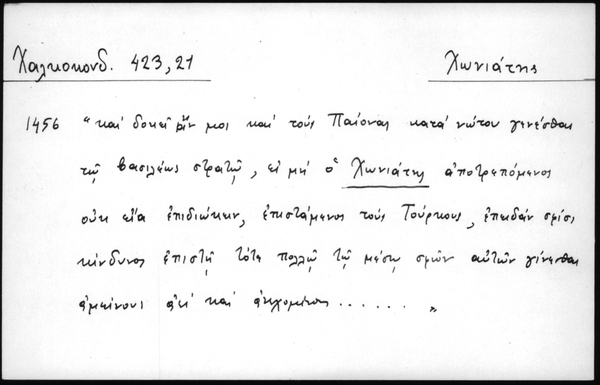 Χαλκοκονδ. 423,21
Χωνιάτης
1456 "καί δοκεῖ ἄν μοι καί τούς Παίονας κατά νώτου γενέσθαι
τῷ βασιλέως στρατῷ, εἰ μή ὁ Χωνιάτης ἀποτρεπόμενος
οὐκ εἴα ἐπιδιώκειν, ἐπιστάμενος τούς Τούρκους, ἐπειδάν σφίσι
κίνδυνος ἐπιστῇ τότε πολλῷ τῷ μέσῳ σφῶν αὐτῶν γίνεσθαι
ἀμείνους καί ...... "